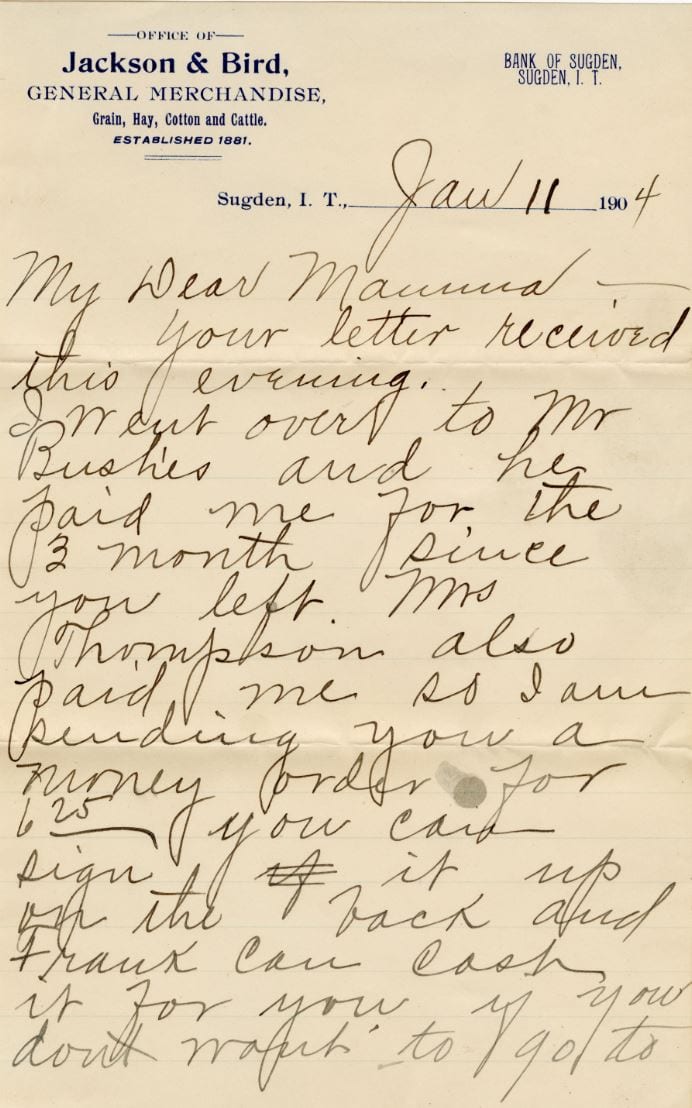 OFFICE OF
Jackson & Bird,
GENERAL MERCHANDISE,
Grain, Hay, Cotton and Cattle.
ESTABLISHED 1881.
BANK OF SUGDEN,
SUGDEN, I. T.
Sugden, I. T., Jan 11 1904
My Dear Mamma —
your letter received
this evening.
I went over to Mr
Bushes and he
paid me for the
3 month since
you left. Mrs
Thompson also
paid me so I am
sending you a
money order for
6 25 you can
sign it up
on the back and
Frank can cash
it for you if you
dont want to go to